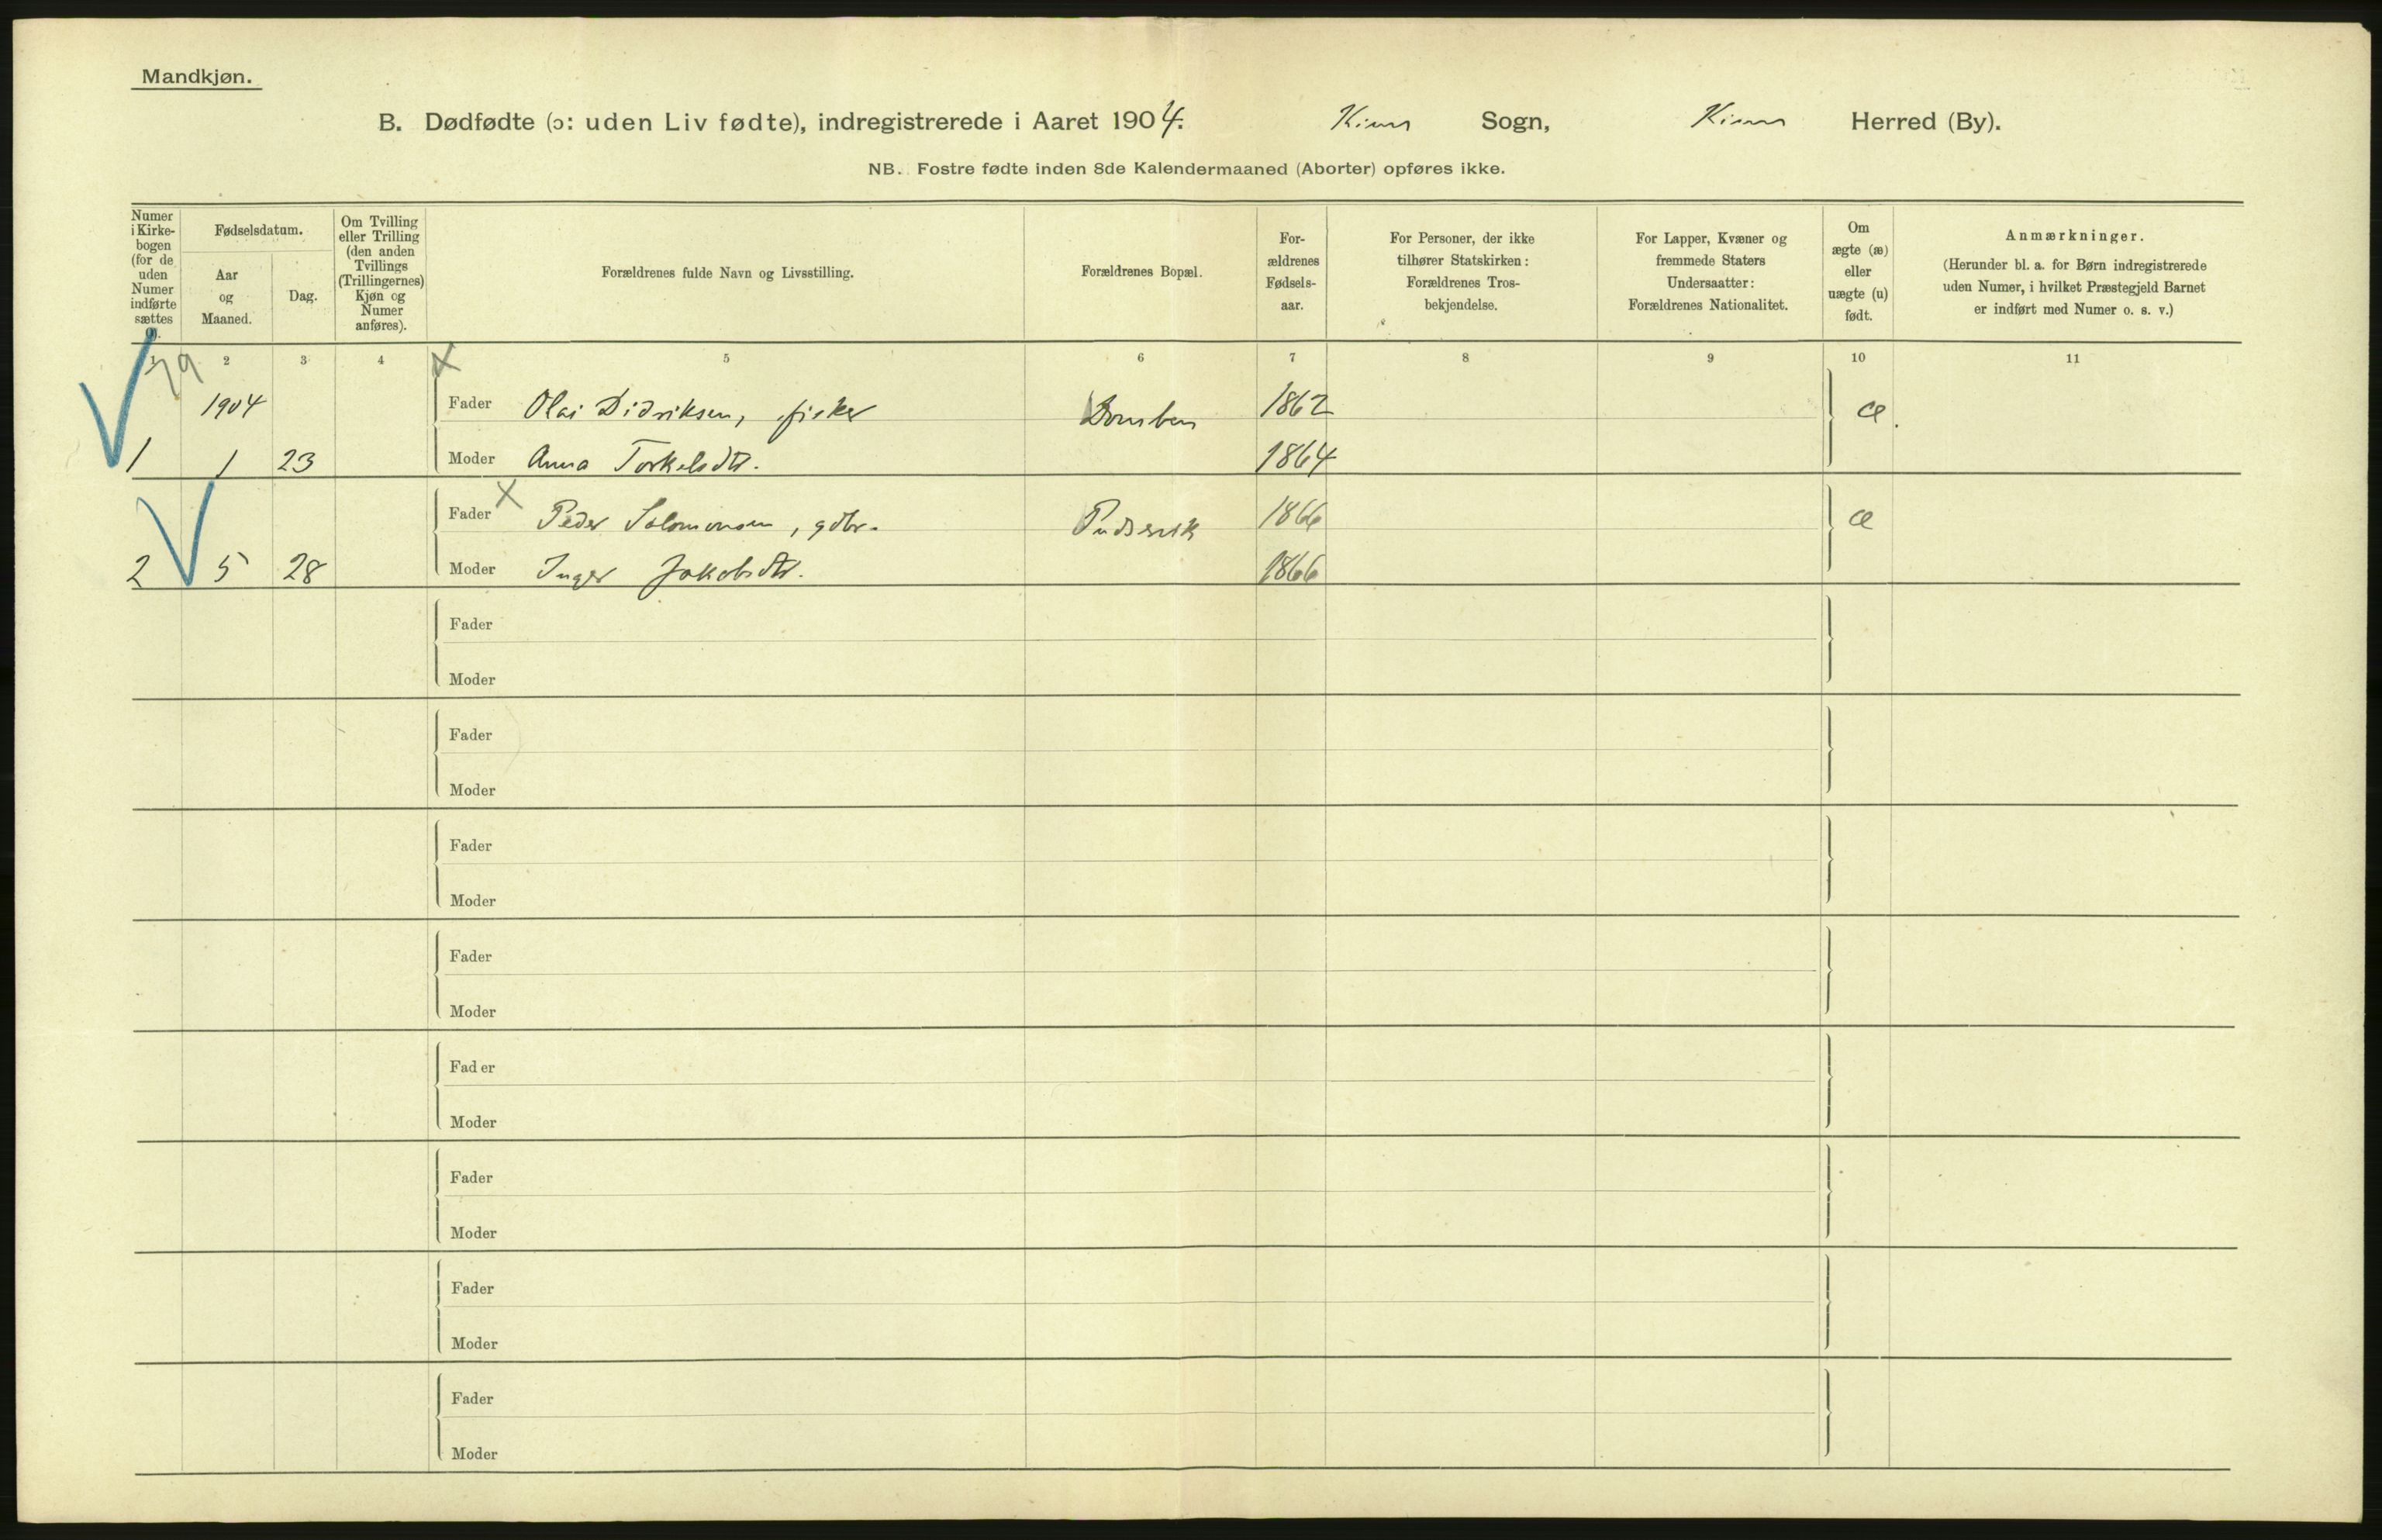 Mandkjøn.
B. Dødfødte (ɔ: uden Liv fødte), indregistrerede i Aaret 1904. Kinn Sogn, Kinn Herred (By).
NB. Fostre fødte inden 8de Kalendermaaned (Aborter) opføres ikke.
Numer i Kirke-bogen (for de uden Numer indførte sættes 0).
Fødselsdatum.
Aar og Maaned.
Dag.
Om Tvilling eller Trilling (den anden Tvillings (Trillingernes) Kjøn og Numer anføres).
Forældrenes fulde Navn og Livsstilling.
Forældrenes Bopæl.
For-ældrenes Fødsels-aar.
For Personer, der ikke tilhører Statskirken: Forældrenes Tros-bekjendelse.
For Lapper, Kvæner og fremmede Staters Undersaatter: Forældrenes Nationalitet.
Om ægte (æ) eller uægte (u) født.
Anmærkninger.
(Herunder bl. a. for Børn indregistrerede uden Numer, i hvilket Præstegjeld Barnet er indført med Numer o. s. v.)
1 2 3 4 5 6 7 8 9 10 11
1904 Fader Olai Didriksen, fisker 1862 æ.
1 1 23 Moder Anna Torkelsdtr. 1864
Fader Peder Salomonsen, gdbr. 1866 æ
2 5 28 Moder Inger Jakobsdtr. 1866
Fader
Moder
Fader
Moder
Fader
Moder
Fader
Moder
Fader
Moder
Fader
Moder
Fader
Moder
Fader
Moder